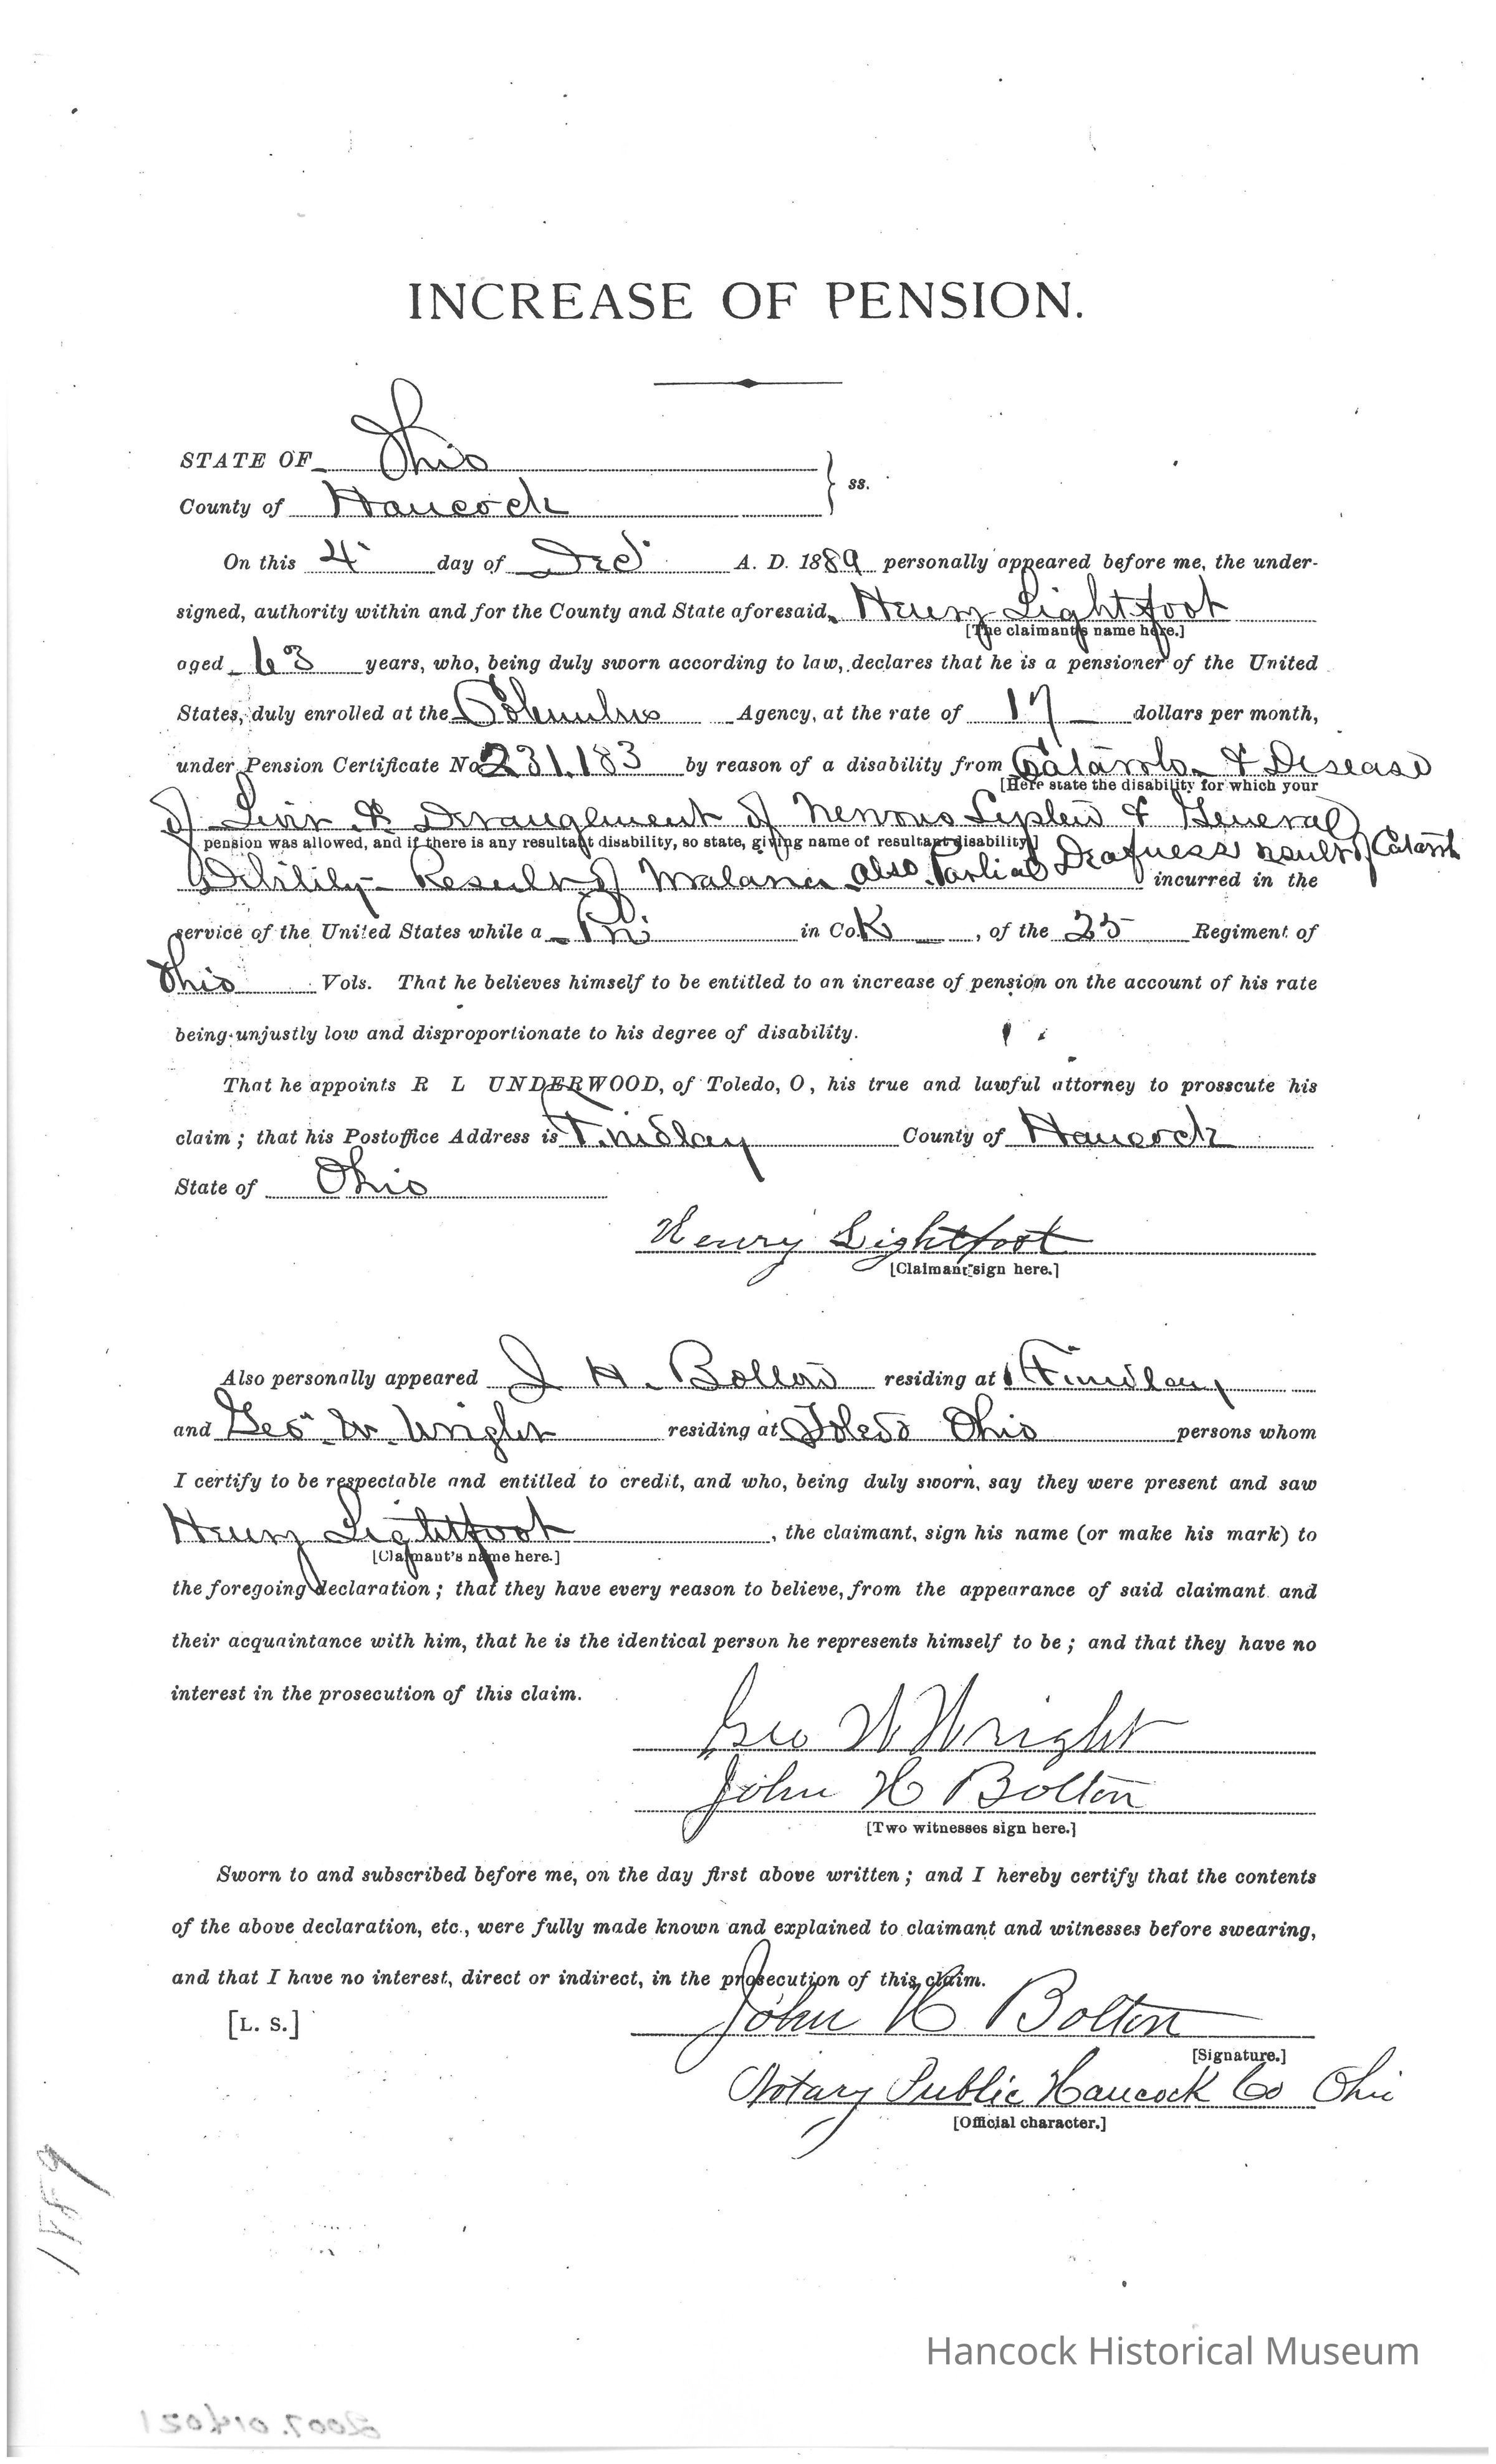 INCREASE OF PENSION.
STATE OF Ohio
County of Hancock } ss.
On this 4" day of Dec' A. D. 1889 personally appeared before me, the under-
signed, authority within and for the County and State aforesaid, Henry Lightfoot
[The claimant's name here.]
aged 63 years, who, being duly sworn according to law, declares that he is a pensioner of the United
States, duly enrolled at the Columbus Agency, at the rate of 17 dollars per month,
under Pension Certificate No 231.183 by reason of a disability from Catarrh & Disease
[Here state the disability for which your
of Liver & Derangement of Nervous System & General
pension was allowed, and if there is any resultant disability, so state, giving name of resultant disability]
Debility - Result of Malaria also Partial Deafness result of Catarrh
incurred in the
service of the United States while a Pri in Co. K, of the 25 Regiment of
Ohio Vols. That he believes himself to be entitled to an increase of pension on the account of his rate
being unjustly low and disproportionate to his degree of disability.
That he appoints R L UNDERWOOD, of Toledo, O, his true and lawful attorney to prosscute his
claim; that his Postoffice Address is Findlay County of Hancock
State of Ohio
Henry Lightfoot
[Claimant sign here.]
Also personally appeared J H. Bolton residing at Findlay
and Geo W. Wright residing at Toledo Ohio persons whom
I certify to be respectable and entitled to credit, and who, being duly sworn, say they were present and saw
Henry Lightfoot, the claimant, sign his name (or make his mark) to
[Claimant's name here.]
the foregoing declaration; that they have every reason to believe, from the appearance of said claimant and
their acquaintance with him, that he is the identical person he represents himself to be; and that they have no
interest in the prosecution of this claim.
Geo W Wright
John H Bolton
[Two witnesses sign here.]
Sworn to and subscribed before me, on the day first above written; and I hereby certify that the contents
of the above declaration, etc., were fully made known and explained to claimant and witnesses before swearing,
and that I have no interest, direct or indirect, in the prosecution of this claim.
[L. S.] John H Bolton
[Signature.]
Notary Public Hancock Co Ohio
[Official character.]
1889
Hancock Historical Museum
2007.014021